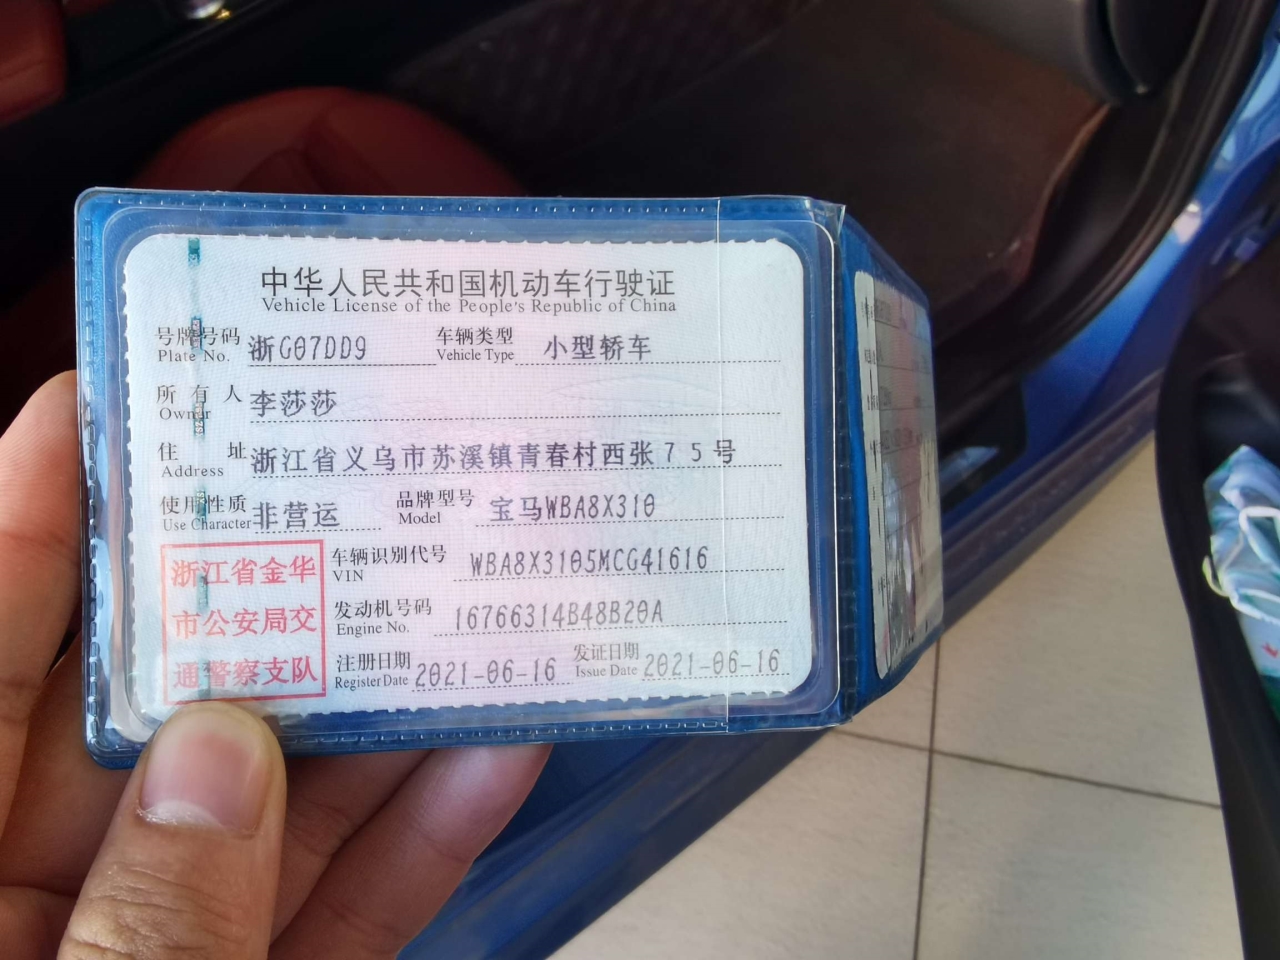 中华人民共和国机动车行驶证
Vehicle License of the People's Republic of China
号牌号码 浙G07DD9 车辆类型 小型轿车
Plate No. Vehicle Type
所有人 李莎莎
Owner
住址 浙江省义乌市苏溪镇青春村西张75号
Address
使用性质 非营运 品牌型号 宝马WBA8X310
Use Character Model
浙江省金华
市公安局交
通警察支队
车辆识别代号 WBA8X3105MCG41616
VIN
发动机号码 16766314B48B20A
Engine No.
注册日期 2021-06-16 发证日期 2021-06-16
Register Date Issue Date